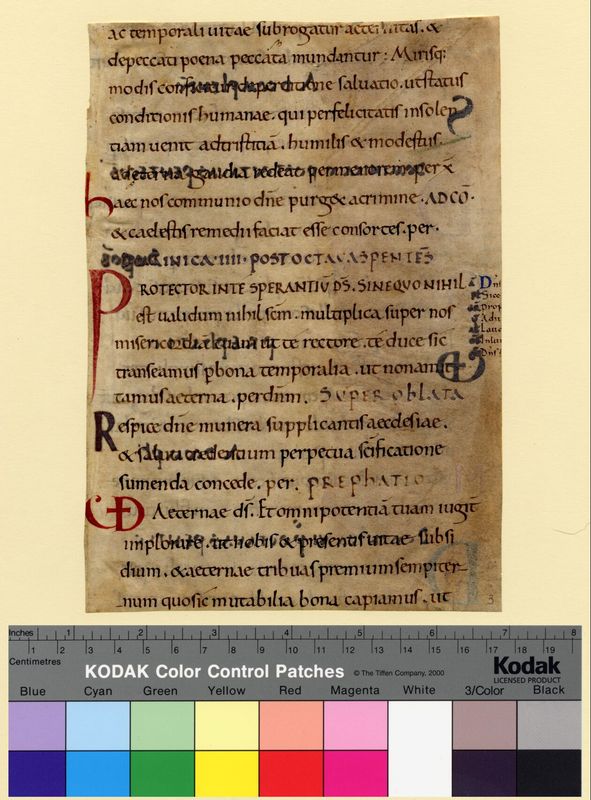 ac temporali uitae subrogatur aeternitas. &
depeccati poena peccata mundantur: Mirisq;
modis conf ne saluatio. utstatus
conditionis humanae. qui perfelicitatis insolen
tiam uenit adtristitiā. humilis & modestus.
gaudia per x̄
haec nos communio dn̄e purg& acrimine. AD CŌ.
& caelestis remedii faciat esse consortes. per.
INICA IIII. POST OCTAVAS PENTĒS
PROTECTOR INTE SPERANTIŪ D̄S. SINE QUO NIHIL
est ualidum nihil scm̄. multiplica super nos
misericordia ut te rectore. te duce sic
transeamus p bona temporalia. ut non amit
tamus aeterna. per dnm̄. SUPER OBLATA
Respice dn̄e munera supplicantis aecclesiae.
& salu credentium perpetua sc̄ificatione
sumenda concede. per. PREPHATIO
Aeternae ds̄. Et omnipotentiā tuam iugit
implorare. ut nobis & presentis uitae subsi
dium. & aeternae tribuas premium sempiter
num quo sic mutabilia bona capiamus. ut
3
Inches 1 2 3 4 5 6 7 8
Centimetres 1 2 3 4 5 6 7 8 9 10 11 12 13 14 15 16 17 18 19
KODAK Color Control Patches © The Tiffen Company, 2000 Kodak
LICENSED PRODUCT
Blue Cyan Green Yellow Red Magenta White 3/Color Black